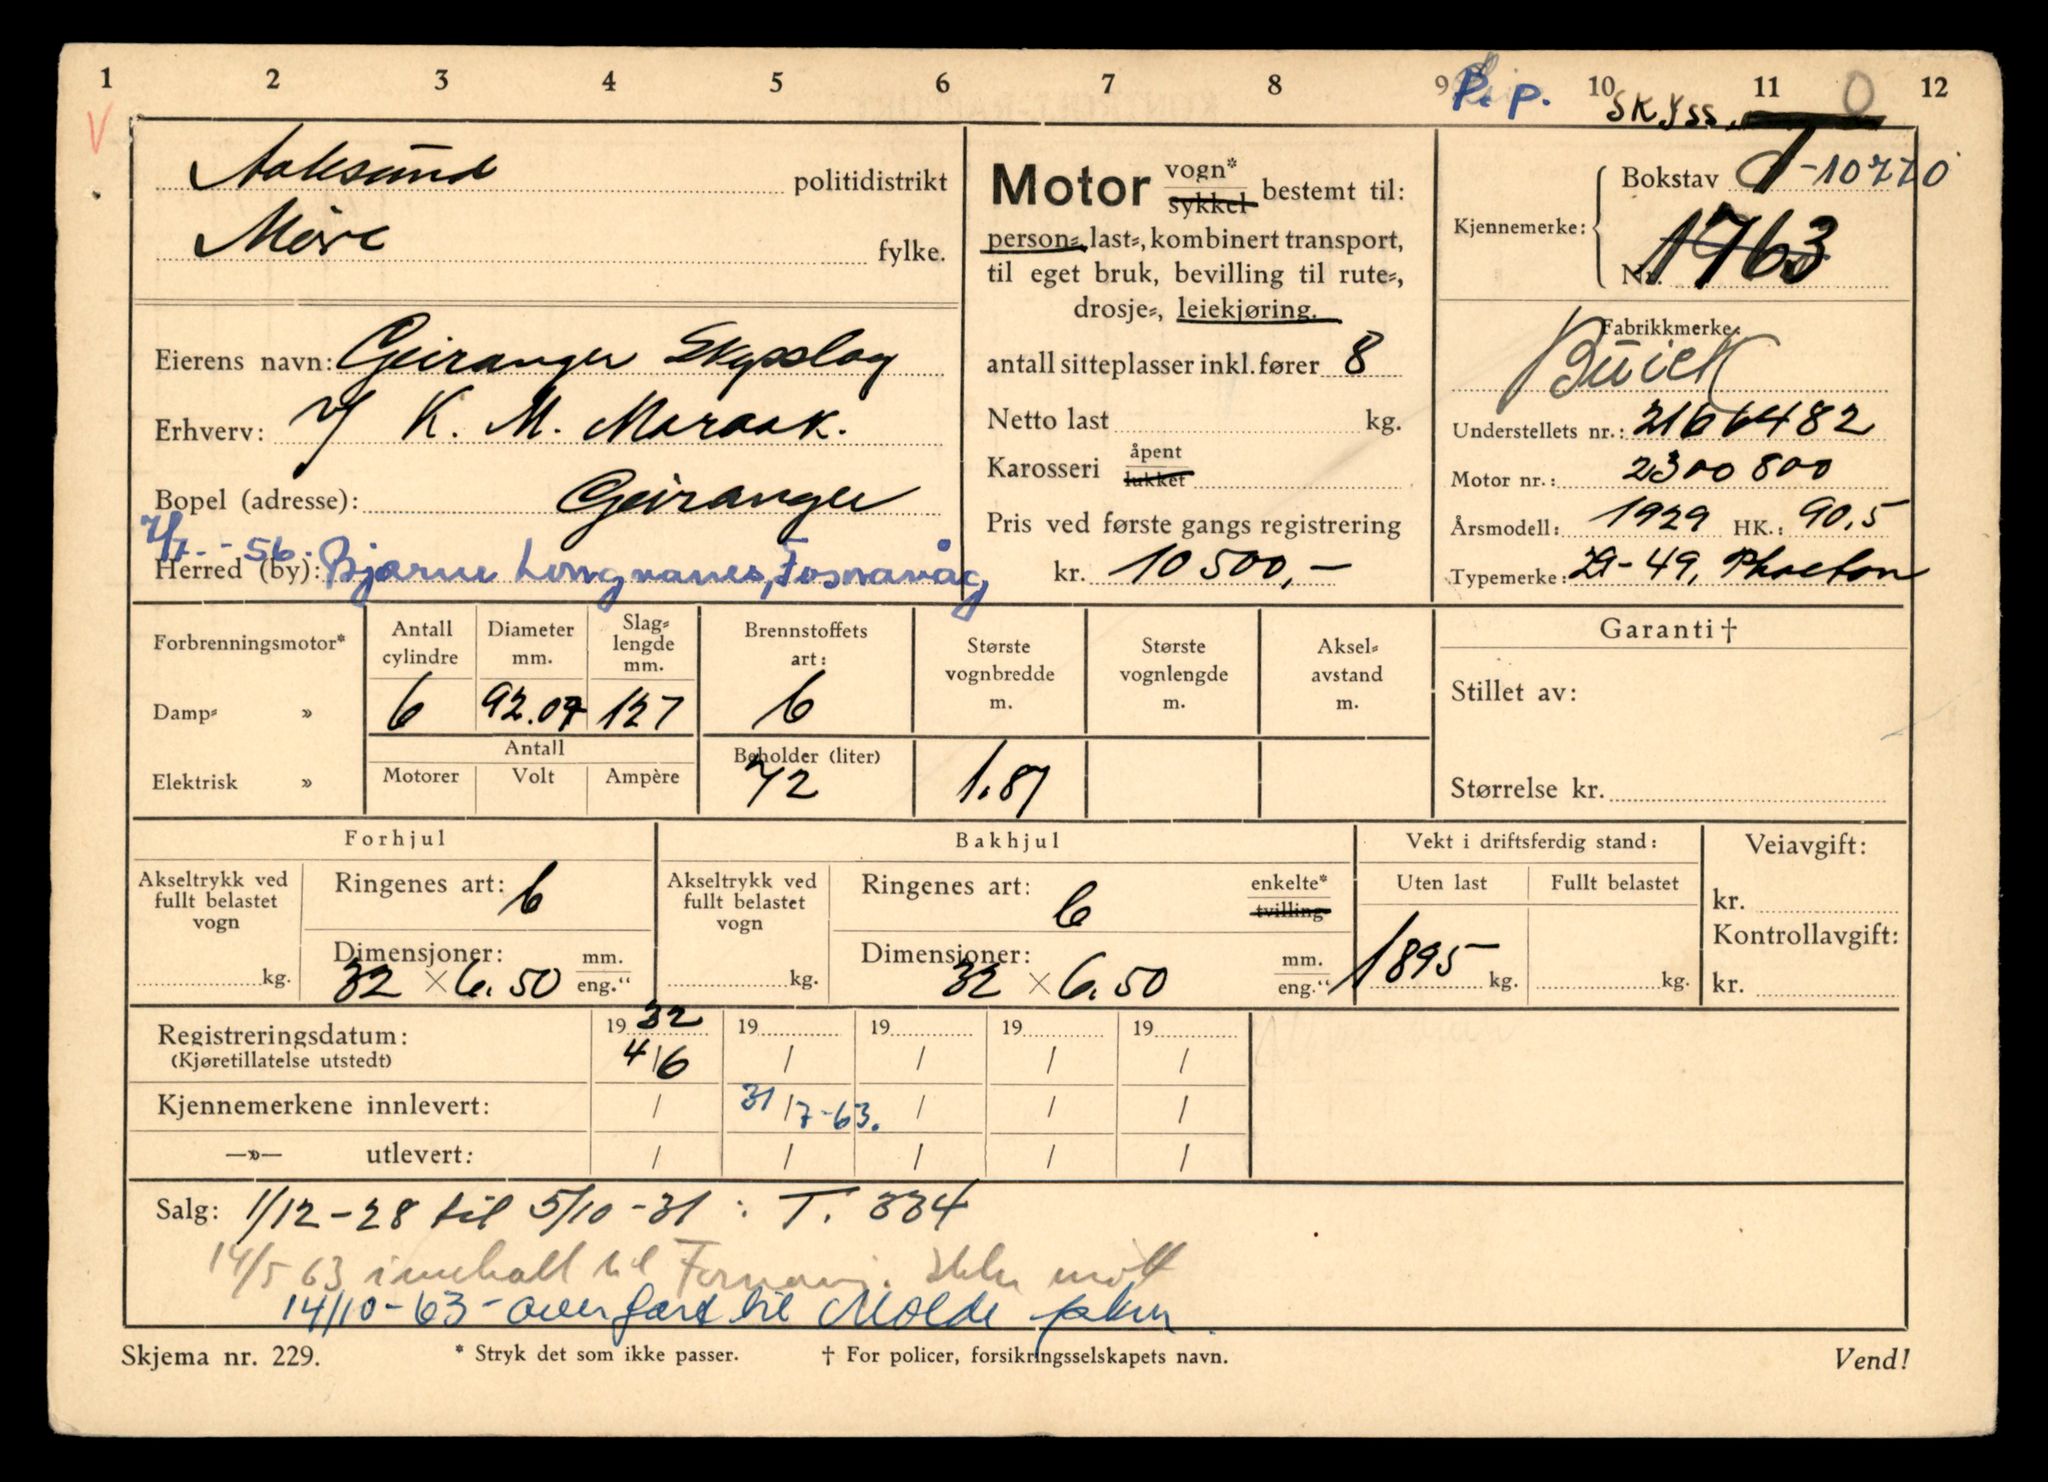 1 2 3 4 5 6 7 8 9 10 11 12
P. p. SKyss. O
V
Aalesund politidistrikt
Møre fylke.
Eierens navn: Geiranger Skysslag
Erhverv: v/ K. M. Meraak.
Bopel (adresse): Geiranger
7/7 - 56.
Herred (by): Bjarne Longvanes, Fosnavåg
Motor vogn* sykkel bestemt til:
person-, last-, kombinert transport,
til eget bruk, bevilling til rute-,
drosje-, leiekjøring.
antall sitteplasser inkl. fører 8
Netto last kg.
Karosseri åpent lukket
Pris ved første gangs registrering
kr. 10 500,-
Kjennemerke: Bokstav T-10770
Nr. 1763
Fabrikkmerke:
Buick
Understellets nr.: 2166482
Motor nr.: 2300800
Årsmodell: 1929 HK.: 90,5
Typemerke: 29-49, Phaeton
Forbrenningsmotor*
Damp- »
Elektrisk »
Antall cylindre 6
Diameter mm. 92.07
Slaglengde mm. 127
Antall
Motorer Volt Ampère
Brennstoffets art: b
Beholder (liter) 72
Største vognbredde m. 1.87
Største vognlengde m.
Akselavstand m.
Garanti †
Stillet av:
Størrelse kr.
Forhjul
Akseltrykk ved fullt belastet vogn kg.
Ringenes art: b
Dimensjoner: 32 × 6.50 mm. eng."
Bakhjul
Akseltrykk ved fullt belastet vogn kg.
Ringenes art: b enkelte* tvilling
Dimensjoner: 32 × 6.50 mm. eng."
Vekt i driftsferdig stand:
Uten last Fullt belastet
1895 kg. kg.
Veiavgift:
kr.
Kontrollavgift:
kr.
Registreringsdatum: 19 32 19 19 19 19
(Kjøretillatelse utstedt) 4/6 / / / /
Kjennemerkene innlevert: / 31/7-63. / / /
—»— utlevert: / / / / /
Salg: 1/12-28 til 5/10-31: T. 334
14/5 63 innkalt til . Ikke møtt
14/10-63 - overført til Molde pkm.
Skjema nr. 229. * Stryk det som ikke passer. † For policer, forsikringsselskapets navn. Vend!